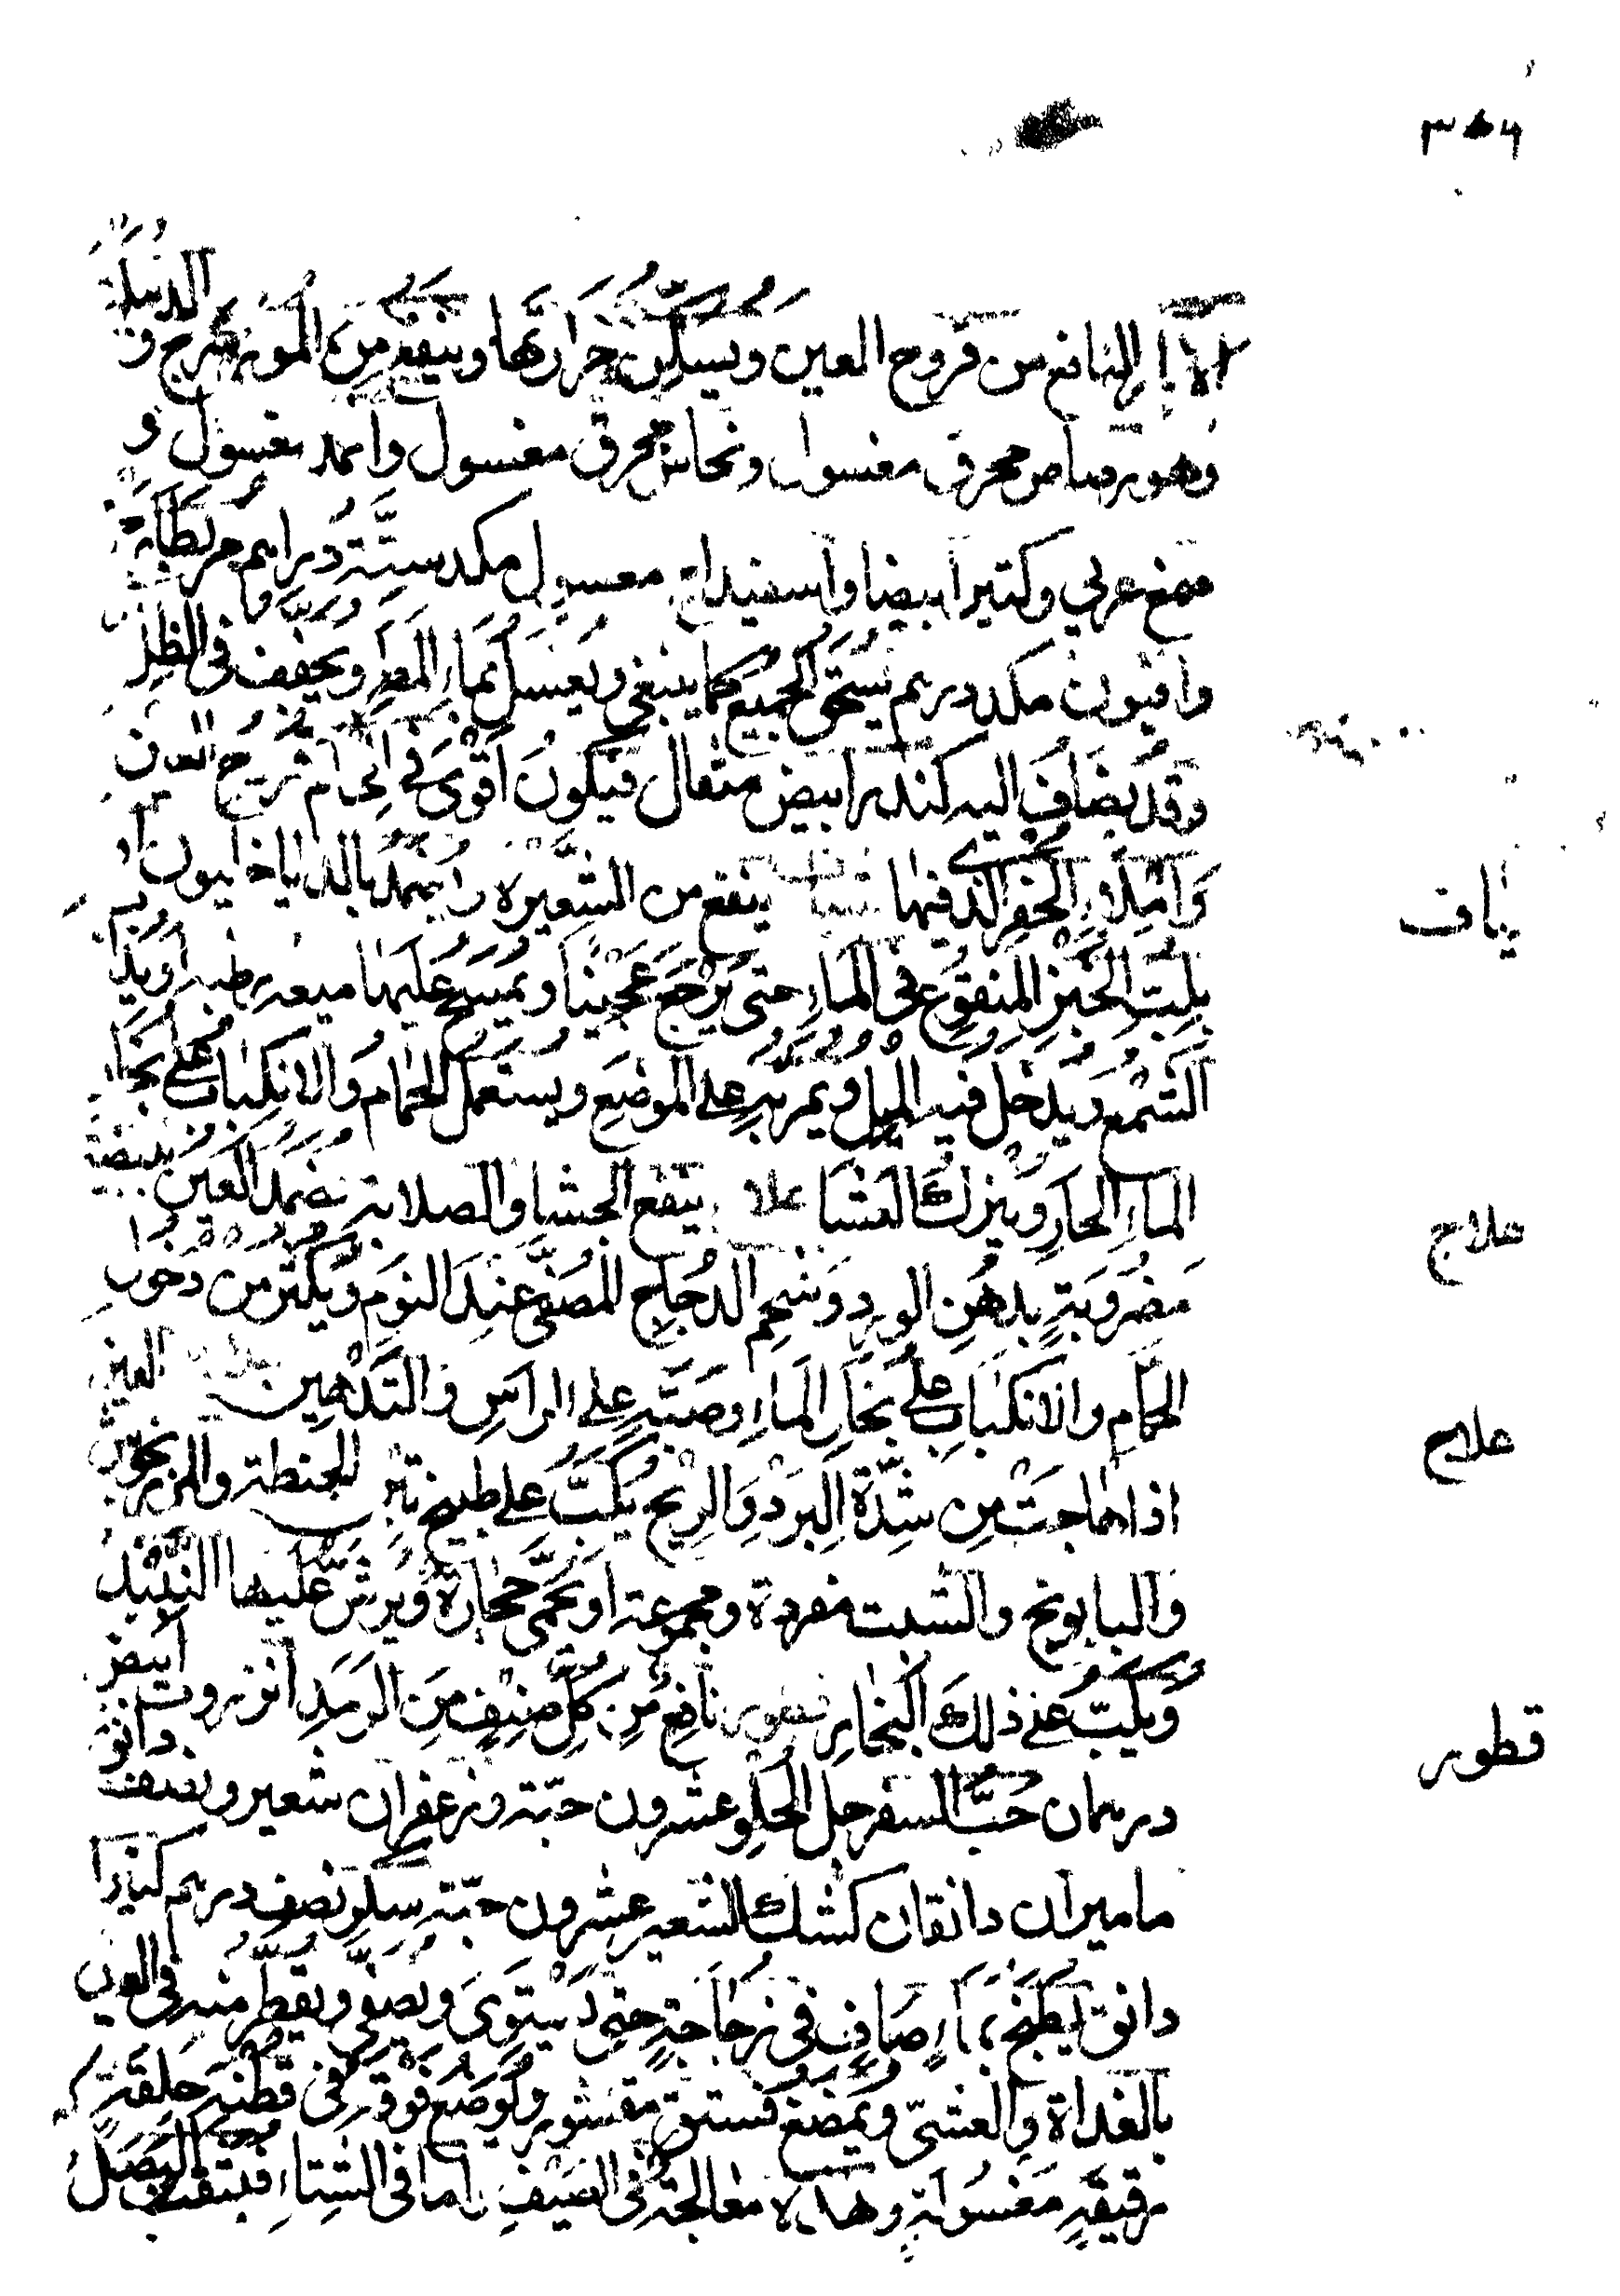 ٣٥٦
الابار النافع من قروح العين ويسكن حرارتها وينفع من المورسرج والدبيلة
وهو رصاص محرق مغسول ونحاس محرق مغسول واثمد مغسول و
صمغ عربي وكتيرا بيضا واسفيداج معسول مكد ستة دراهم مر بطارخ
وافيون مكد درهم يسحق الجميع كما ينبغي ويغسل بماء المطر ويجفف في الظل
وقد يضاف اليه كندر ابيض مثقال فيكون اقوى في الحام قروح العين
وامتلاء الحفر الذى فيها ينفع من الشعيره يضمد بالداياخليون او
بلب الخبز المنقوع في الماء حتى يرجع عجينا ويمسح عليها ميعه رطبه او يذاب
الشمع ويدخل فيه الميل ويمر به على الموضع ويستعمل الحمام والانكباب على بخار
الماء الحار ويترك العشا علاج ينفع الجسا والصلابة تضمد العين ببيضة
مضروبة بدهن الورد وشحم الدجاج المصفى عند النوم ويكثر من دخول
الحمام والانكباب على بخار الماء وصبه على الراس والتدهين علاج العين
اذا هاجت من شدة البرد والريح يكب على طبيخ تبن الحنطة والمرزنجوش
والبابونج والشبت مفردة ومجموعة او تحمى حجارة ويرش عليها النبيذ
ويكب على ذلك البخار قطور نافع من كل صنف من الرمد انزروت ابيض
درهمان حب السفرجل الحلو عشرون حبة وزعفران شعير ونصف دانق
ماميران دانقان كشك الشعير عشرون حبة سكر نصف درهم كتيرا
دانق يطبخ بماء صاف في زجاجة حتى يستوى ويصفى ويقطر منه في العين
بالغداة والعشي ويمضغ فستق مقشور ويوضع فوقه في قطنه خلقة
رقيقة مغسولة وهذه معالجة في الصيف اما في الشتاء فينقى البصل
يافت
علاج
علاج
قطور